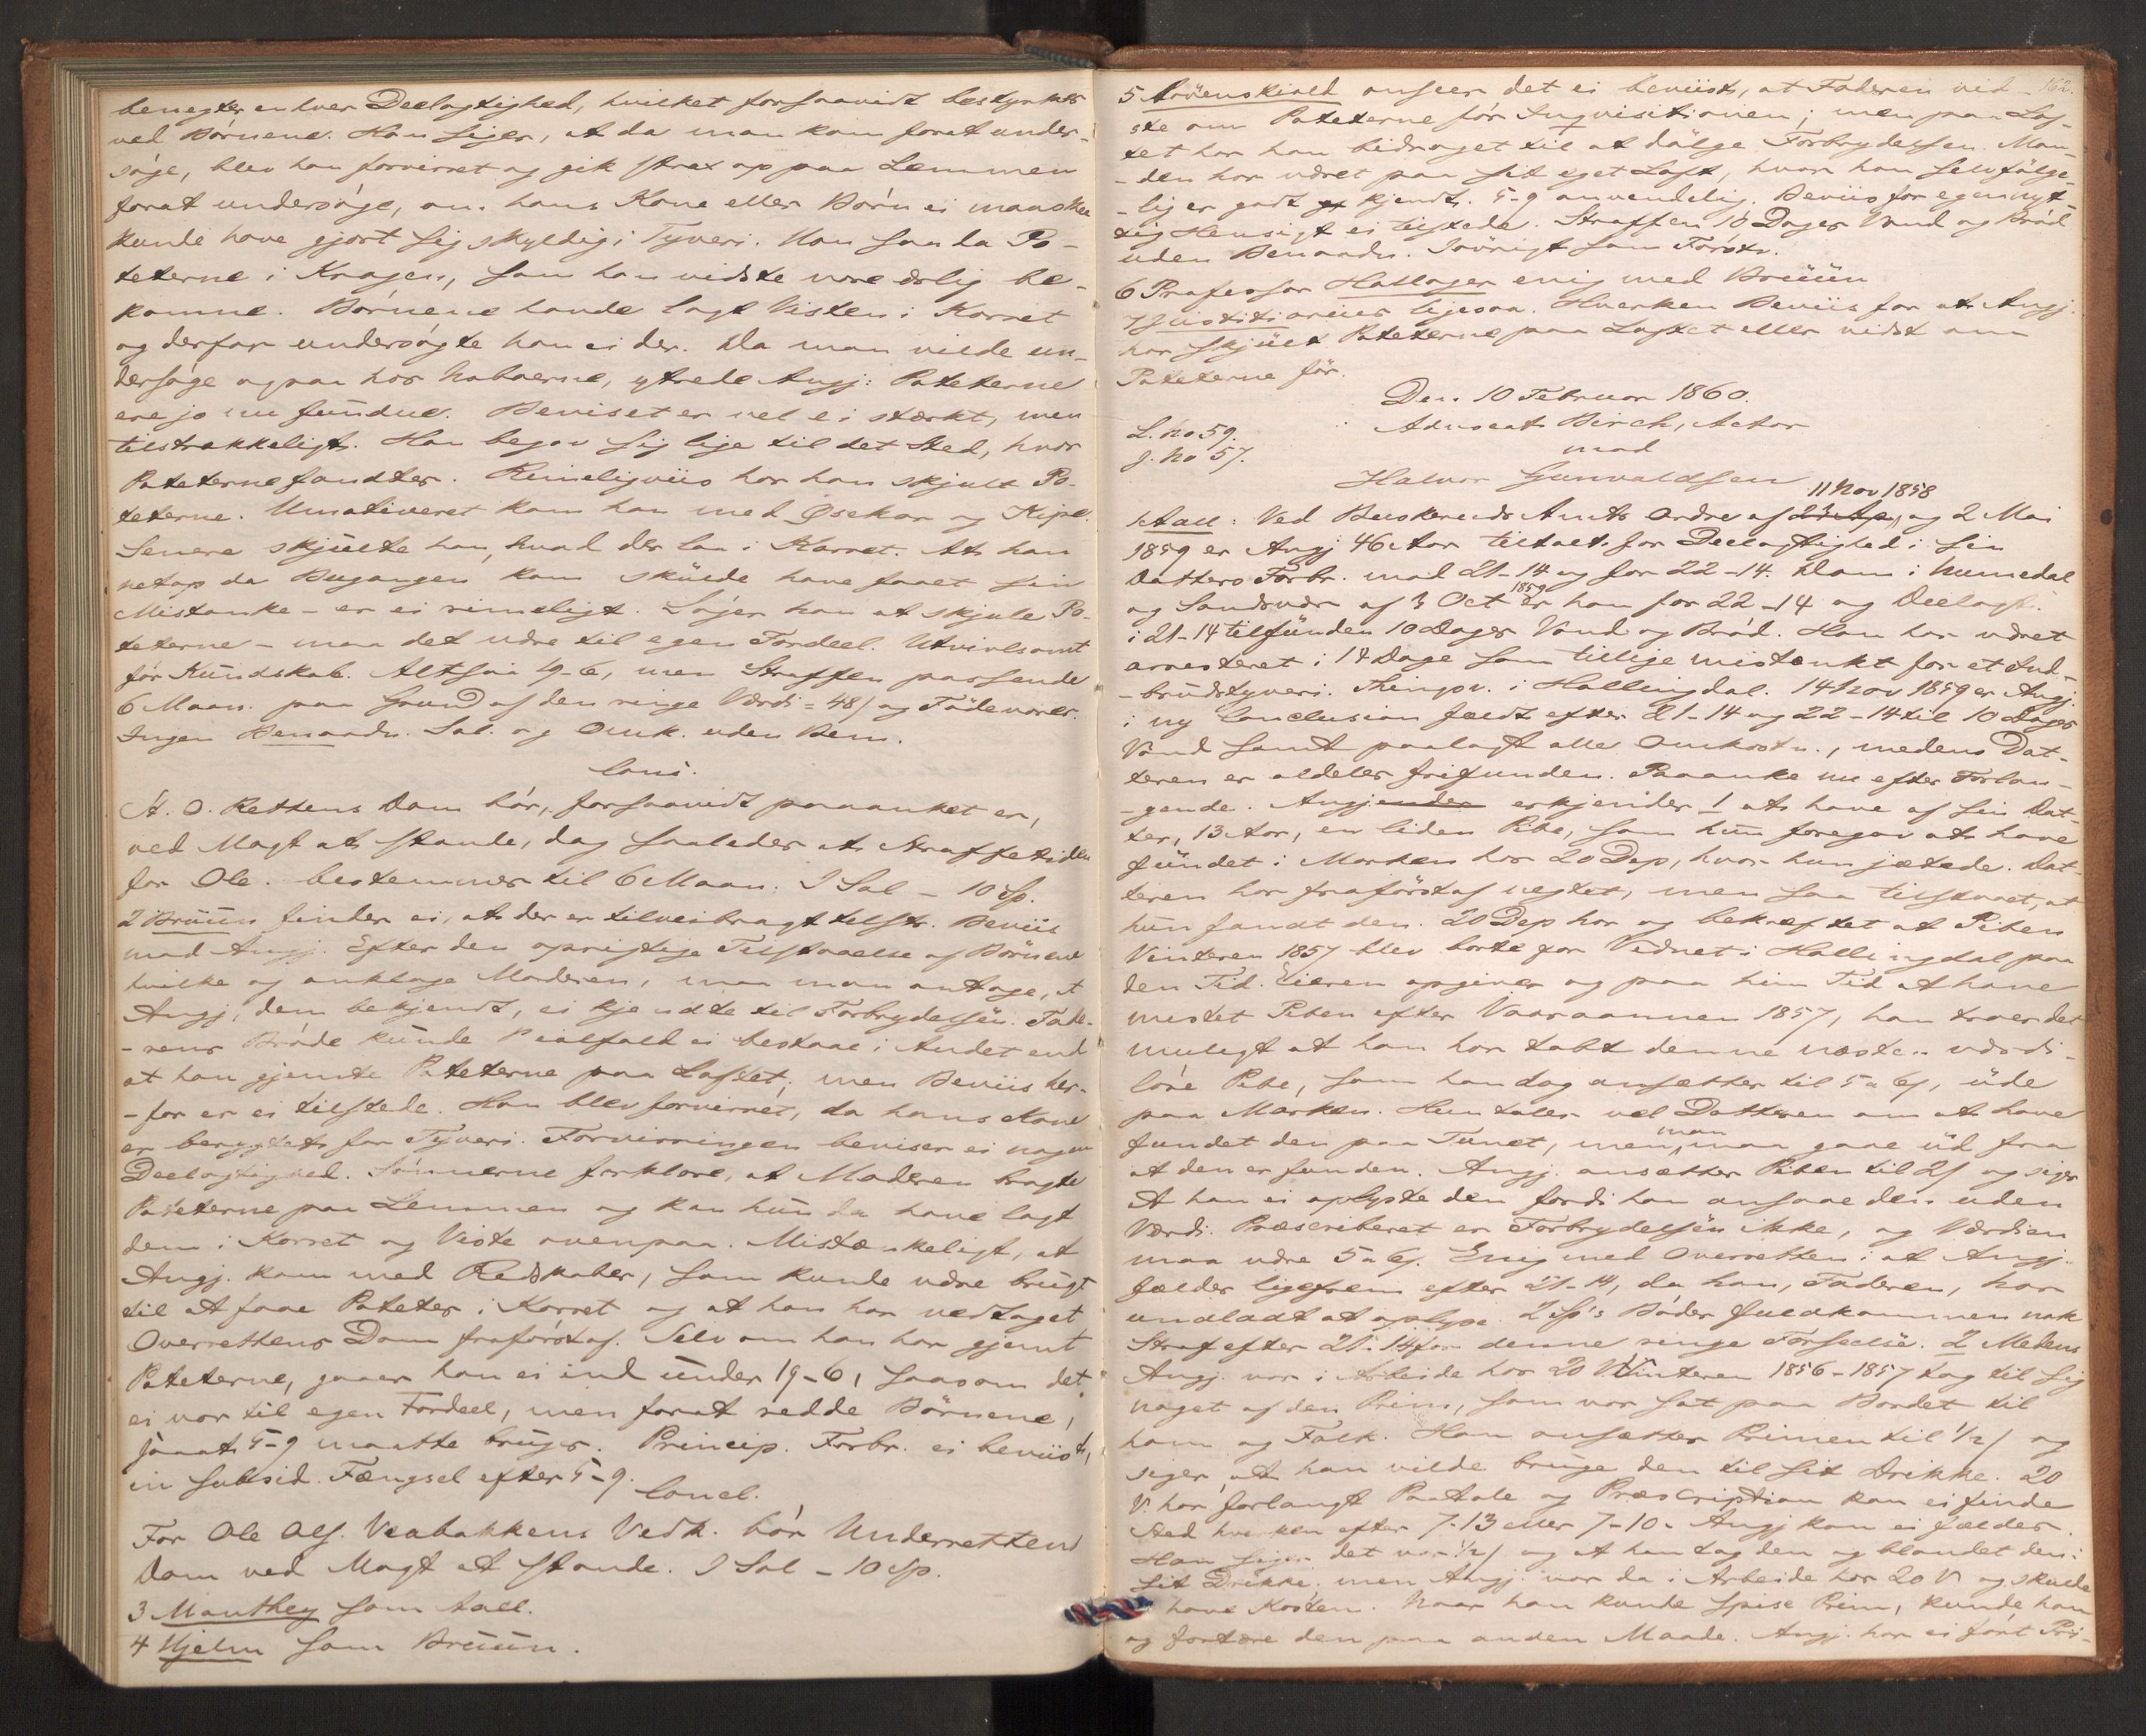 benegter enhver Deelagtighed, hvilket forsaavidt bestyrkes
ved Börnene. Han siger, at da man kom forat under-
söge, blev han forvirret og gik strax op paa Lemmen
forat undersöge, om hans Kone eller Börn ei maaskee
kunde have gjort sig skyldig i Tyveri. Han saa da Po-
teterne i Kragen, som han vidste vare ærlig be-
komne. Börnene havde lagt Kisten i Karret
og derfor undersögte han ei der. Da man vilde un-
dersöge ogsaa hos Naboerne, ytrede Angj: Poteterne
ere jo nu fundne. Beviset er vel ei stærkt, men
tilstrækkeligt. Han begav sig lige til det Sted, hvor
Poteterne fandtes. Rimeligviis har han skjult Po-
teterne. Umotiveret kom han med Øsekar og Kipe.
Senere skjulte han, hvad der laa i Karret. At han
netop da Bugangen kom skulde have faaet sin
Mistanke - er ei rimeligt. Söger han at skjule Po-
teterne - maa det være til egen Fordeel. Utvivlsomt
för Kundskab. Altsaa 19-6, men Straffen passende
6 Maan. paa Grund af den ringe Værdi = 48/ og Födevarer.
Ingen Benaadn. Sal. og Omk. uden Bem.
Conc.
A. O. Rettens Dom bör, forsaavidt paaanket er,
ved Magt at stande, dog saaledes at Straffetiden
for Ole bestemmes til 6 Maan. I Sal - 10 Sp.
2 Bruun finder ei, at der er tilveibragt tilstr. Beviis
mod Angj. Efter den oprigtige Tilstaaelse af Börnene
hvilke og anklage Moderen, maa man antage, at
Angj, dem bekjendt, ei kjendte til Forbrydelsen. Fade-
-rens Bröde kunde i ialfald ei bestaae i Andet end
at han gjemte Poteterne paa Loftet; men Beviis her-
-for er ei tilstede. Han blev forvirret, da hans Kone
er berygtet for Tyveri. Forvirringen beviser ei nogen
Deelagtighed. Sönnerne forklare, at Moderen bragte
Poteterne paa Lemmen og kan hun da have lagt
dem i Karret og Kiste ovenpaa. Mistænkeligt, at
Angj. kom med Redskaber, som kunde være brugt
til at faae Poteter i Karret og at han har vedtaget
Overrettens Dom fraförstaf. Selv om han har gjemt
Poteterne, gaaer han ei ind under 19-6, saasom det
ei var til egen Fordeel, men forat redde Börnene,
saaat 5-9 maatte bruges. Princip. Forbr. ei beviist,
in subsid. Fængsel efter 5-9.
Concl.
For Ole Ols. Veabakkens Vedk. bör Underrettens
Dom ved Magt at stande. I Sal - 10 Sp.
3 Manthey som Aall.
4 Hjelm som Bruun.
162.
5 Arvenskiold anseer det ei beviist, at Faderen vid-
ste om Poteterne för Inqvisitionen; men paa Lof-
tet har han bidraget til at dölge Forbrydelsen. Man-
-den har været paa sit eget Loft, hvor han selvfölge-
-lig er godt kjendt. 5-9 anvendelig. Beviis for egennyt-
tig Hensigt ei tilstede. Straffen 10 Dages Vand og Bröd
uden Benaadn. Iövrigt som Förstv.
6 Professor Hallager enig med Bruun
7 Justitiarius ligesaa. Hverken Beviis for at Angj.
har skjult Poteterne paa Loftet eller vidst om
Poteterne för.
Den 10 Februar 1860.
L. No 59. Advocat Birch, Actor
J. No 57. mod
Halvor Gunvaldsen
11 Nov 1858
1 Aall: Ved Buskeruds Amts Ordre af og 2 Mai
1859 er Angj 46 Aar tiltalt for Deelagtighed i sin
Datters Forbr. mod 21-14 og for 22-14. Dom i Numedal
1859
og Sandsvær af 3 Oct er han for 22-14 og Deelagt.
i 21-14 tilfunden 10 Dages Vand og Bröd. Han har været
arresteret i 17 Dage som tillige mistænkt for et Ind-
-brudstyveri. Thingv. i Hallingdal. 14 Nov 1859 er Angj.
i ny Conclusion fældt efter 21-14 og 22-14 til 10 Dages
Vand samt paalagt alle Omkostn., medens Dat-
teren er aldeles frifunden. Paaanke nu efter Forlan-
-gende. Angj erkjender 1 at have af sin Dat-
ter, 13 Aar, en liden Pibe, som hun foregav at have
fundet i Marken hos 20 Dep, hvor hun jætede. Dat-
teren har fraförstaf negtet, men saa tilstaaet, at
hun fandt den. 20 Dep har og bekræftet at Piben
Vinteren 1857 blev borte for Vidnet i Hallingdal paa
den Tid. Eieren opgiver og paa hiin Tid at have
mistet Piben efter Vaaraannen 1857, han troer det
muligt at han har tabt denne næsten værdi-
löse Pibe, som han dog ansætter til 5 a 6/, ude
paa Marken. Hun taler vel Datteren om at have
man
fundet den paa Tunet, men, maa gaae ud fra
at den er funden. Angj. ansætter Piben til 2/ og siger
At han ei oplyste den fordi han ansaae den uden
Værdi. Præscriberet er Forbrydelsen ikke, og Værdien
maa være 5 a 6/. Enig med Overretten i at Angj.
fælder ligefrem efter 21-14, da han, Faderen, har
undladt at oplyse. 2 Sp's Böder fuldkommen nok
Straf efter 21-14 for denne ringe Forseelse. 2 Medens
Angj. var i Arbeide hos 20 V. Vinteren 1856-1857 tog til sig
noget af den Prim, som var sat paa Bordet til
ham og Folk. Han ansætter Primen til 1/2/ og
siger, at han vilde bruge den til sit Drikke. 20
V. har forlangt Paatale og Præscription kan ei finde
Sted hverken efter 7-13 eller 7-10. Angj kan ei fældes.
Han siger det var 1/2/ og at han tog den og blandet den i
sit Drikke; men Angj. var da i Arbeide hos 20 V. og skulde
have Kosten. Naar han kunde spise Prim, kunde han
og fortære den paa anden Maade. Angj. har ei fört Pri-